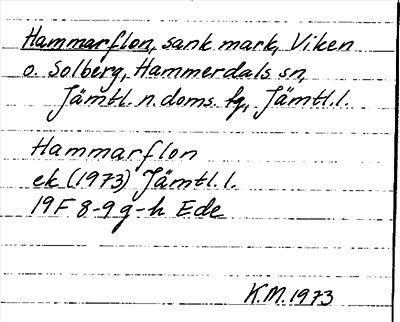 Hammarflon, sank mark, Viken
o. Solberg, Hammerdals sn,
Jämtl. n. doms. fg, Jämtl. l.
Hammarflon
ek (1973) Jämtl. l.
19F 8-9 g-h Ede
K.M. 1973